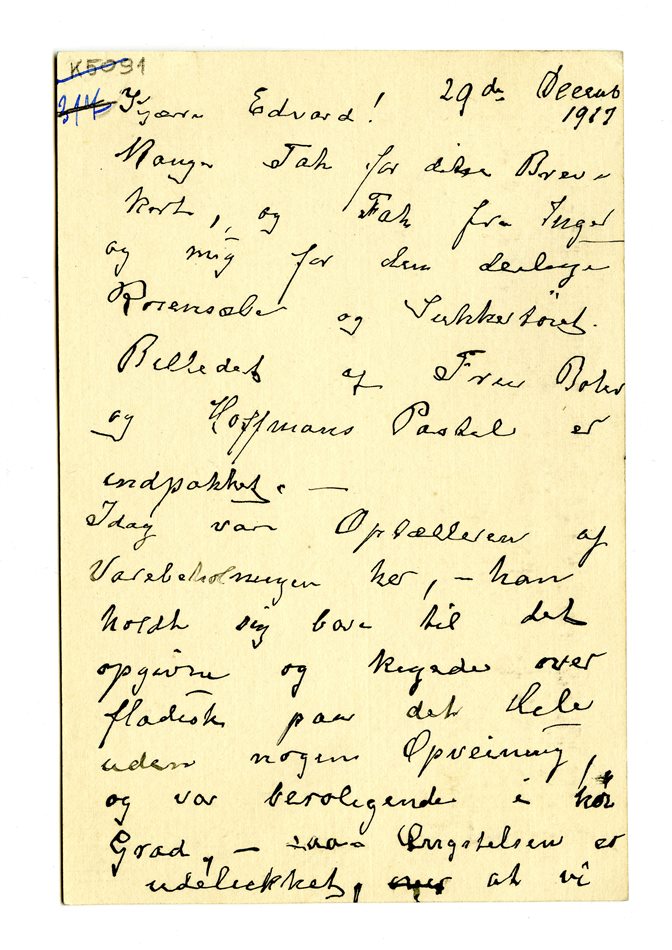 K5091
314
Kjære Edvard! 29de Decemb
1917
Mange Tak for disse Brev-
kort, og Tak fra Inger
og mig for den deilige
Rosensæbe og Sukkertöiet.
Billedet af Frue Boher
og Hoffmans Pastel er
indpakket. —
Idag var Optælleren af
Varebeholningen her, – han
holdt sig bare til det
opgivne og kigede over
fladisk paa det Hele
uden nogen Opveining,
og var beroligende i höi
Grad, – saa Engstelsen er
udelukket, at vi